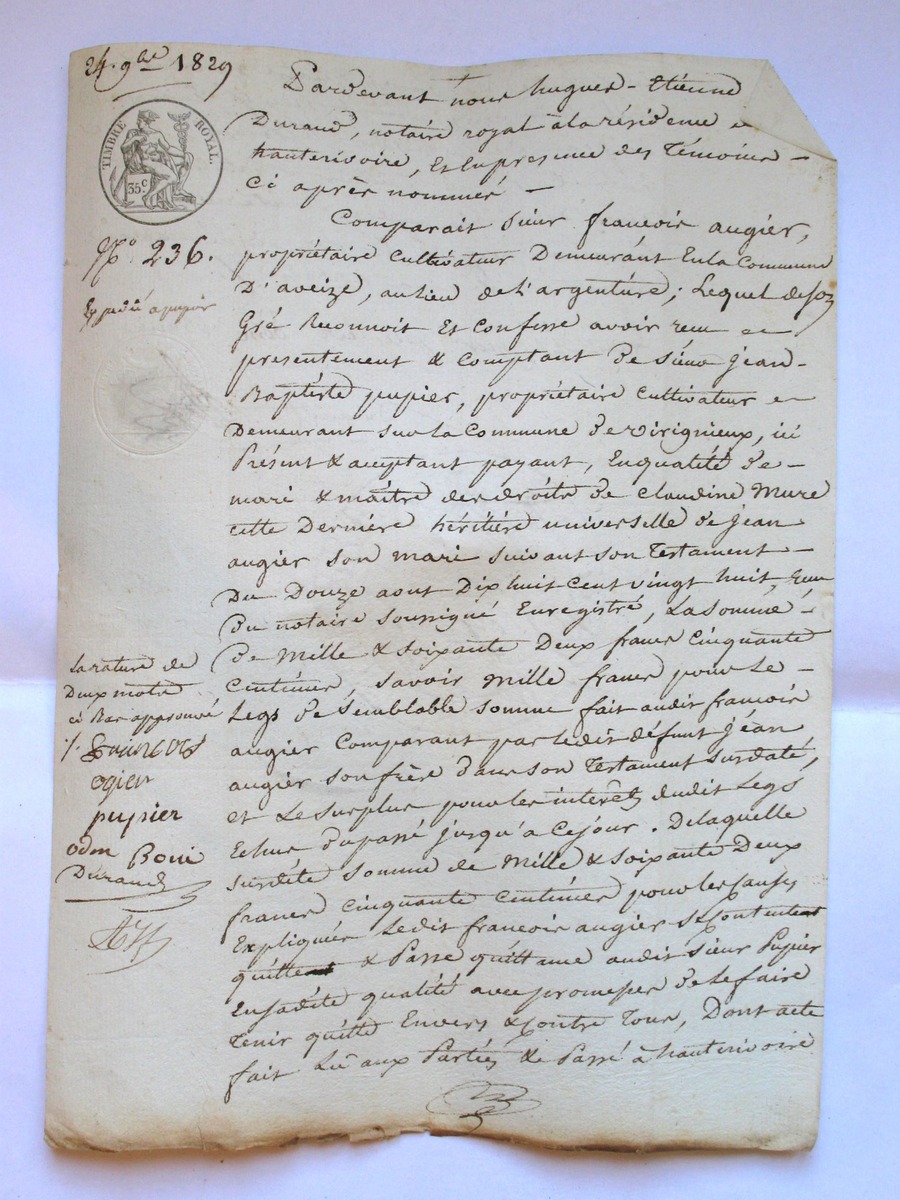 24 9bre 1829
TIMBRE ROYAL.
35 c.
No. 236.
Expédié a pupier
Pardevant nous hugues - Etienne
Durand, notaire royal à la résidence
hauterivoire, Et en presence des Témoins -
Ci après nommés -
Comparait Sieur francois augier,
propriétaire cultivateur Demeurant En la Commune
D'aveize, au lieu de l'argenture; Lequel de son
Gré Reconnoit Et confesse avoir recu
presentement & comptant de Sieur jean-
Baptiste pupier, propriétaire cultivateur
Demeurant sur la Commune de virignieux, ici
Présent & acceptant payant, En qualité de -
mari & maitre des droits de Claudine Mure
cette Derniere héritière universelle de jean
augier son mari suivant son Testament -
Du Douze aout Dix huit cent vingt huit, recu
du notaire soussigné Enregistré, La somme -
de Mille & soixante Deux francs Cinquante
Centimes, savoir Mille francs pour Le -
Legs de Semblable somme fait audit francois
augier Comparant par ledit défunt jean
augier son frère dans son Testament surdaté,
et Le surplus pour les intérêts dudit Legs
Echus du passé jusqu'a Ce jour. De laquelle
susdite somme de Mille & soixante Deux
francs Cinquante Centimes pour les causes
Expliquées Ledit francois augier se contente
quitte & Passe quittance audit Sieur Pupier
En sadite qualité avec promesses de le faire
Tenir quitte Envers & Contre Tous, Dont acte
fait Lû aux Parties & Passé à hauterivoire
La rature de
Deux mots
ci Bas approuvé
francois
ogier
pupier
odin Boui
Durand